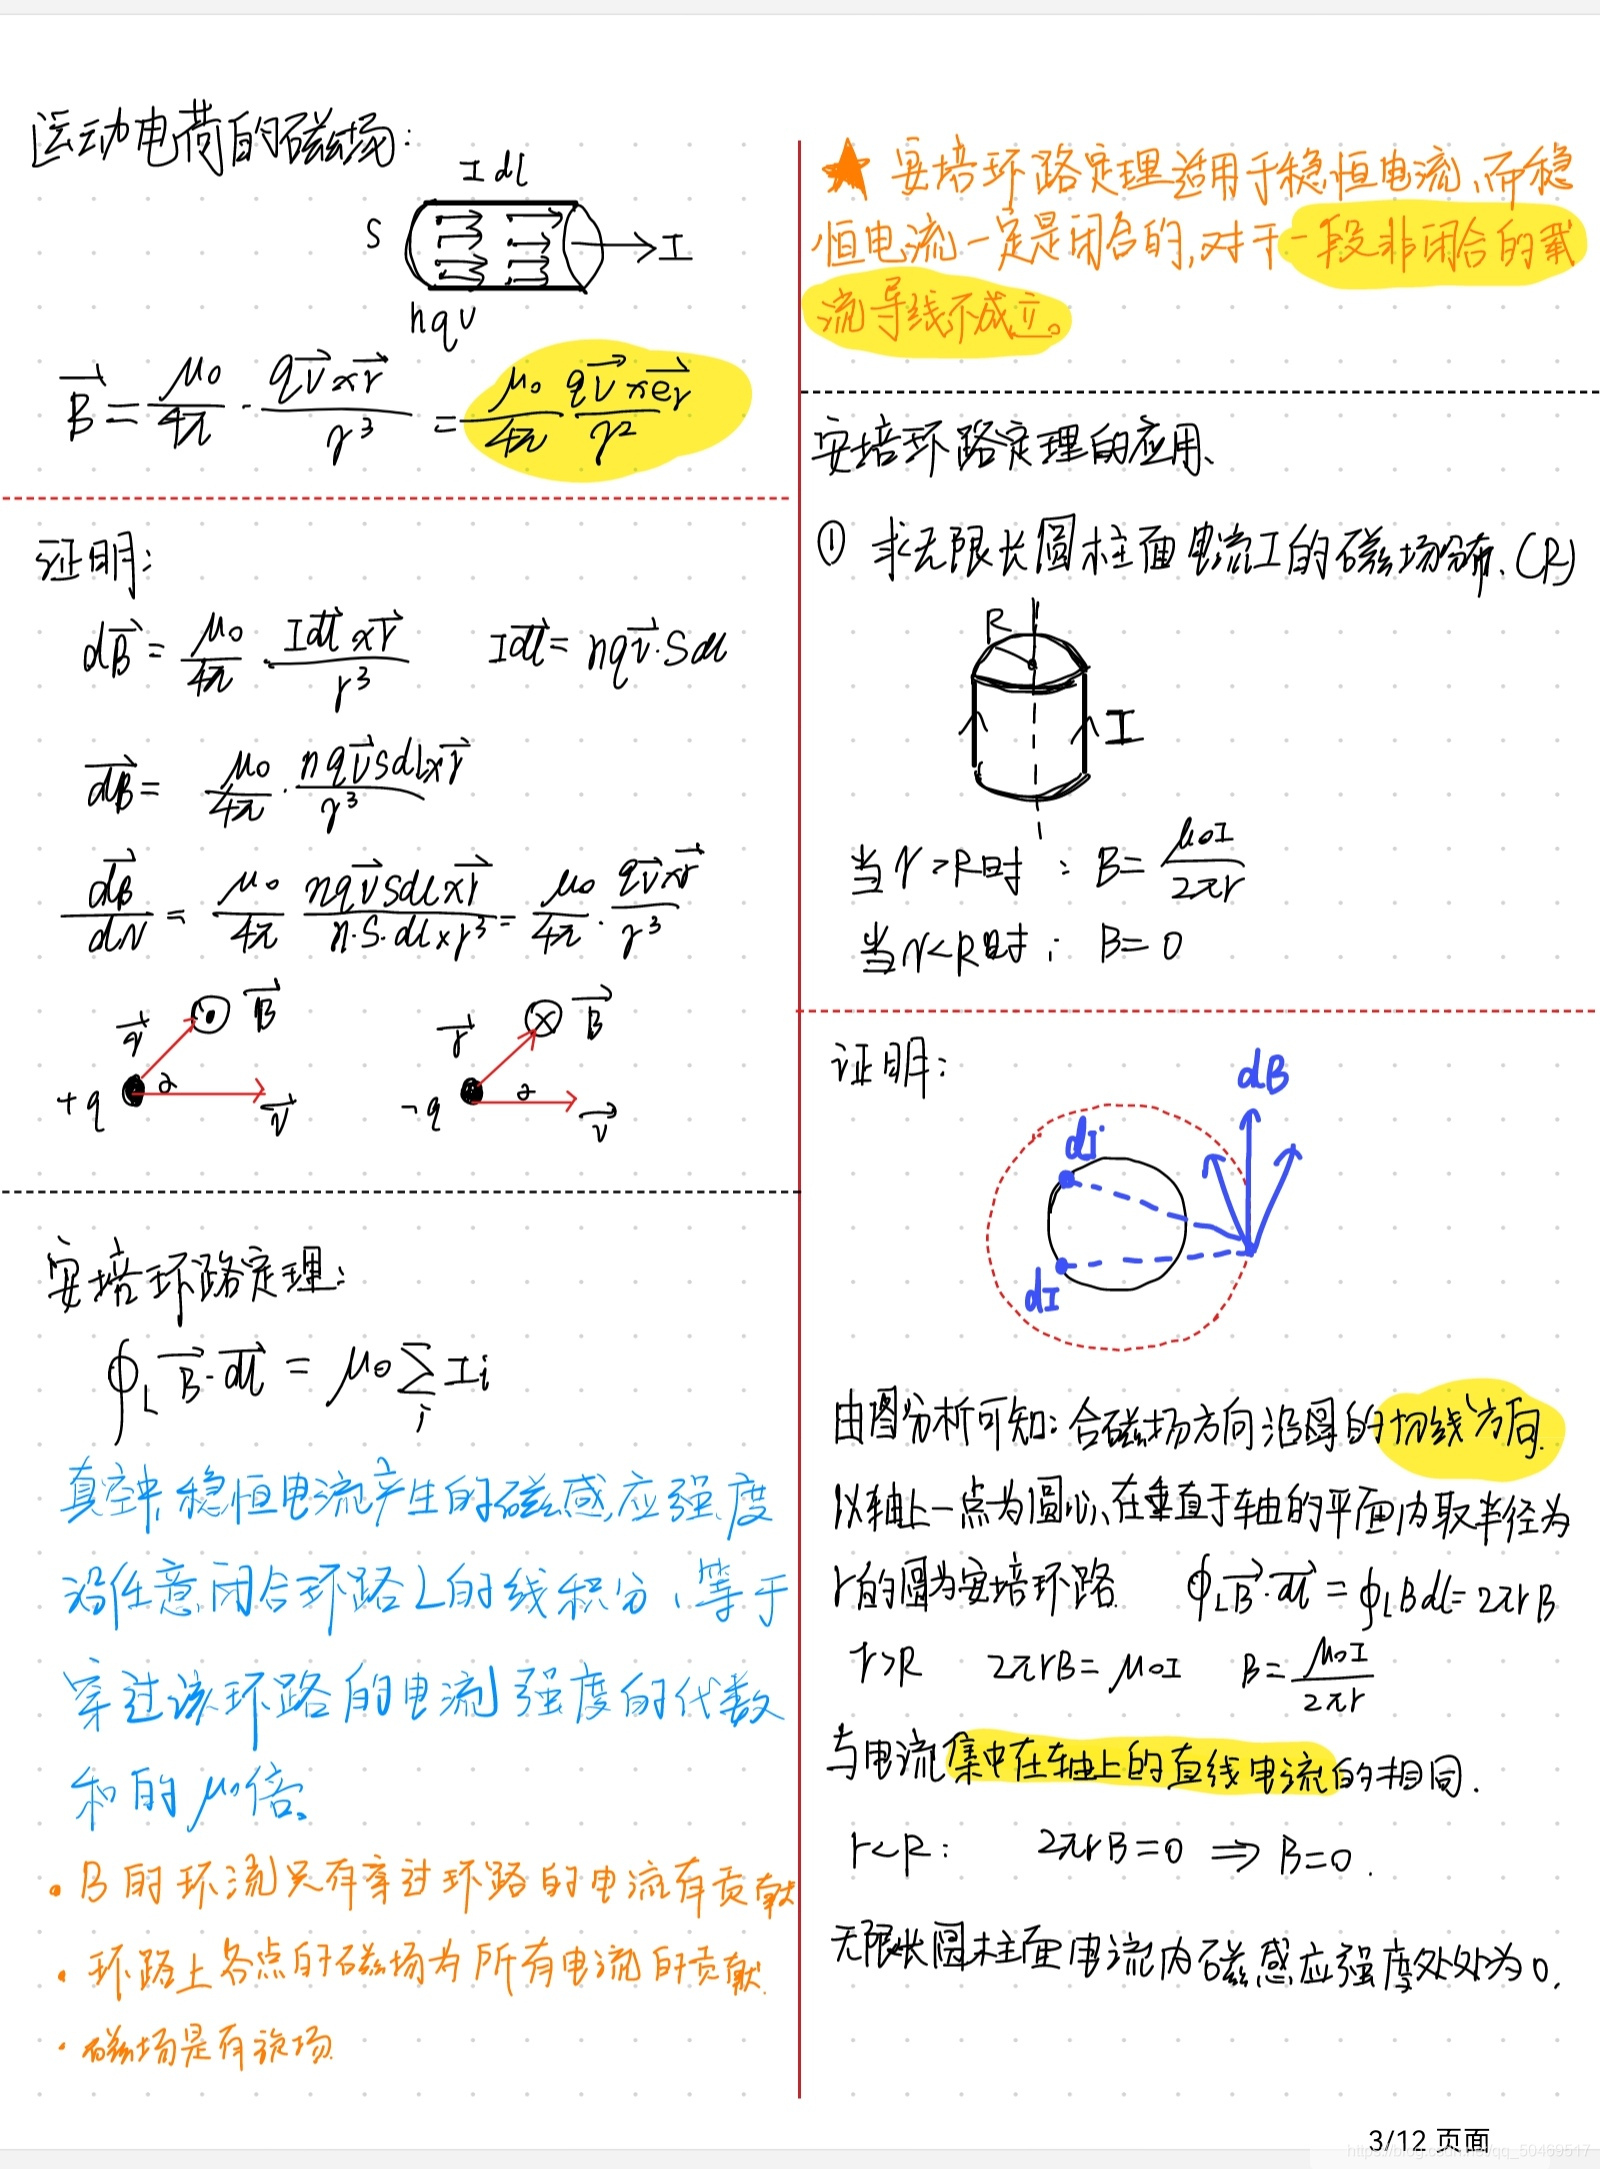 运动电荷的磁场:
Idl
S
I
nqv
B⃗ = μ₀/4π · qv⃗×r⃗/r³ = μ₀/4π qv⃗×e⃗r/r²
证明:
dB⃗ = μ₀/4π · Idl⃗×r⃗/r³ Idl⃗ = nqv⃗·Sdl
dB⃗ = μ₀/4π · nqv⃗sdl×r⃗/r³
dB⃗/dN = μ₀/4π nqv⃗sdl×r⃗/n·S·dl×r³ = μ₀/4π · qv⃗×r⃗/r³
r⃗ B⃗ r⃗ B⃗
+q α v⃗ -q α v⃗
安培环路定理:
∮L B⃗·dl⃗ = μ₀∑i Ii
真空中,稳恒电流产生的磁感应强度
沿任意闭合环路L的线积分,等于
穿过该环路的电流强度的代数
和的μ₀倍。
·B的环流只有穿过环路的电流有贡献
·环路上各点的磁场为所有电流的贡献.
·磁场是有旋场
★ 安培环路定理适用于稳恒电流,而稳
恒电流一定是闭合的,对于一段非闭合的载
流导线不成立。
安培环路定理的应用、
① 求无限长圆柱面电流I的磁场分布.(R)
R
I
当r>R时: B=μ₀I/2πr
当r<R时: B=0
证明:
dB
dI'
dI
由图分析可知:合磁场方向沿圆的切线方向.
以轴上一点为圆心,在垂直于轴的平面内取半径为
r的圆为安培环路. ∮L B⃗·dl⃗ = ∮L Bdl = 2πrB
r>R 2πrB=μ₀I B=μ₀I/2πr
与电流集中在轴上的直线电流的相同.
r<R: 2πrB=0 ⇒ B=0.
无限长圆柱面电流内磁感应强度处处为0.
3/12 页面
https://blog.csdn.net/qq_50469517